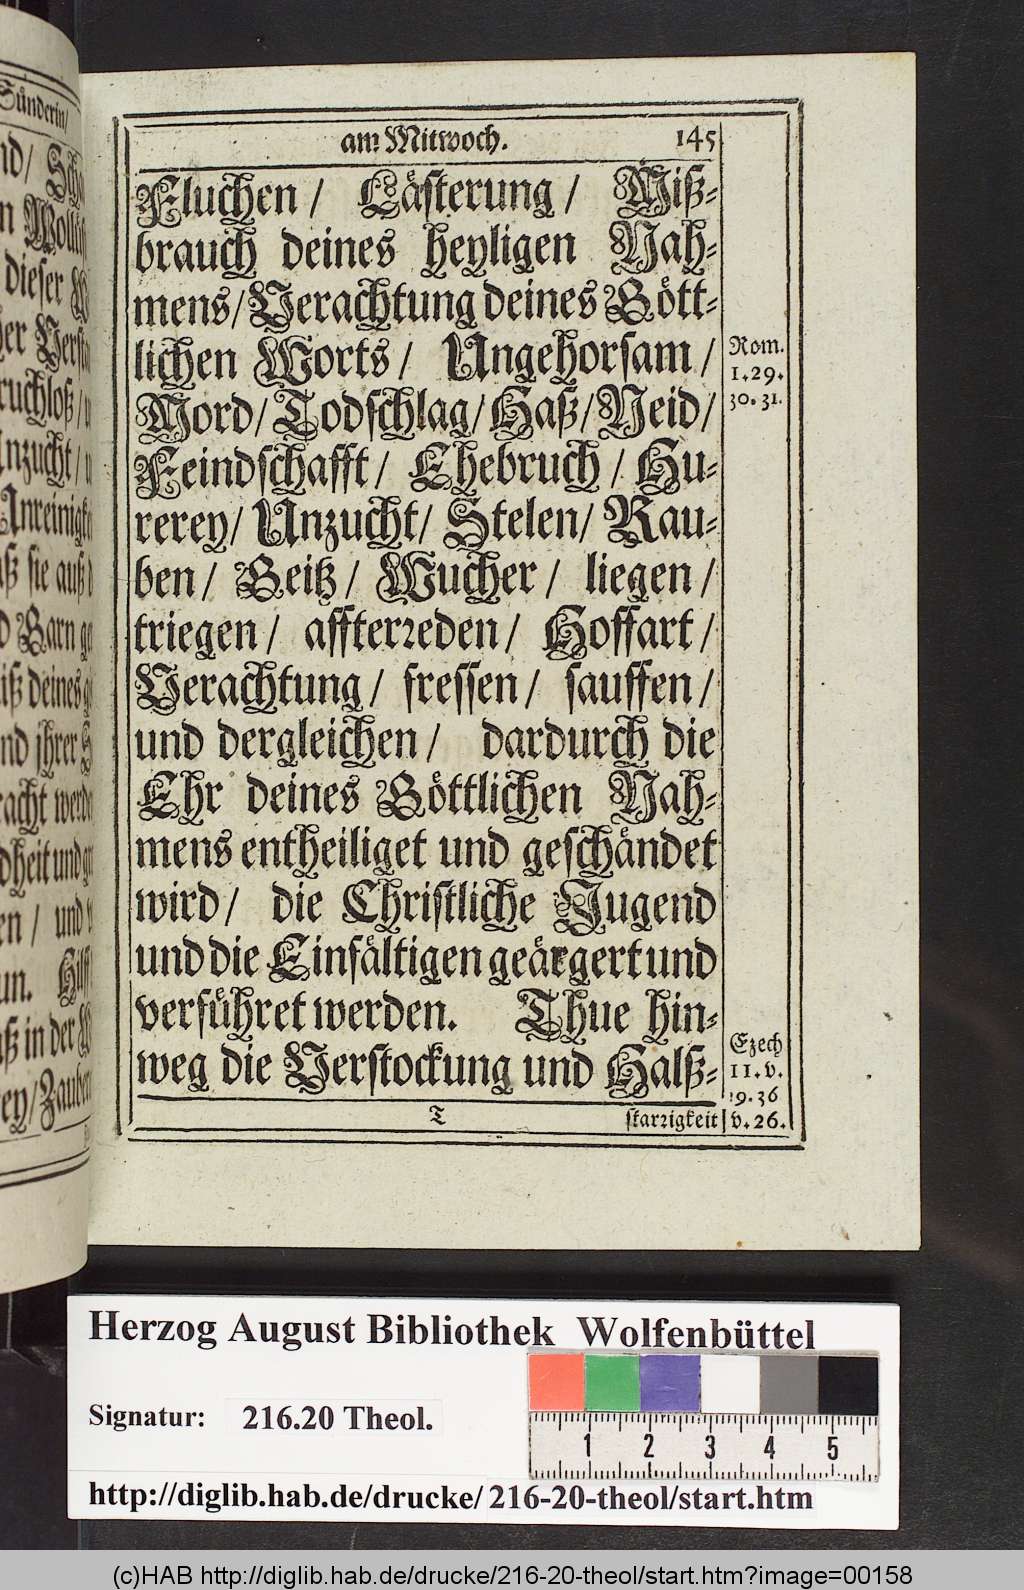 am Mitwoch. 145
Fluchen / Lästerung / Miß-
brauch deines heyligen Nah-
mens / Verachtung deines Gött-
lichen Worts / Ungehorsam /
Mord / Todschlag / Haß / Neid /
Feindschafft / Ehebruch / Hu-
rerey / Unzucht / Stelen / Rau-
ben / Geitz / Wucher / liegen /
triegen / affterreden / Hoffart /
Verachtung / fressen / sauffen /
und dergleichen / dardurch die
Ehr deines Göttlichen Nah-
mens entheiliget und geschändet
wird / die Christliche Jugend
und die Einfältigen geärgert und
verführet werden. Thue hin-
weg die Verstockung und Halß-
T starrigkeit
Rom.
1.29.
30.31.
Ezech
11.v.
19.36
v.26.
Sünderin /
Herzog August Bibliothek Wolfenbüttel
Signatur: 216.20 Theol.
1 2 3 4 5
http://diglib.hab.de/drucke/216-20-theol/start.htm
(c)HAB http://diglib.hab.de/drucke/216-20-theol/start.htm?image=00158